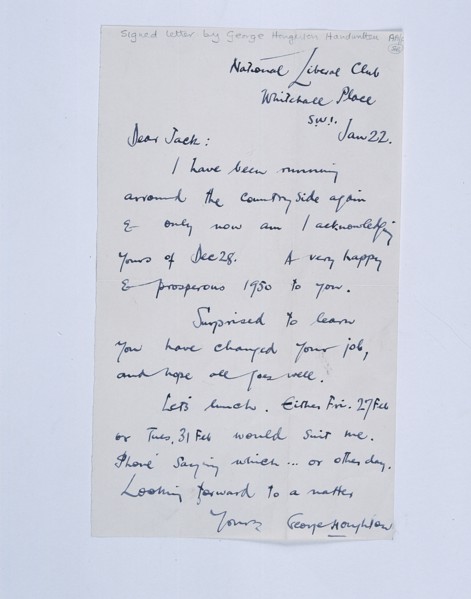 Signed letter by George Houghton Handwritten
National Liberal Club
Whitehall Place
S.W.1.
Jan 22.
Dear Jack:
I have been running
arround the countryside again
& only now am I acknowledging
yours of Dec 28. A very happy
& prosperous 1950 to you.
Surprised to learn
you have changed your job,
and hope all goes well.
Let's lunch. Either Fri. 27 Feb
or Tues. 31 Feb would suit me.
'Phone saying which ... or other day.
Looking forward to a natter
Yours, George Houghton